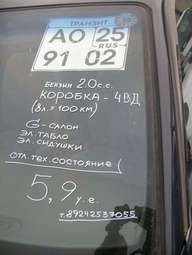 ТРАНЗИТ
АО 25
RUS
91 02
БЕНЗИН 2.0 с.с.
КОРОБКА - 4ВД
(8л. = 100км)
G - САЛОН
ЭЛ. ТАБЛО
ЭЛ. СИДУШКИ
ОТЛ. ТЕХ. СОСТОЯНИЕ (
5,9 у.е.
т. 89242537055